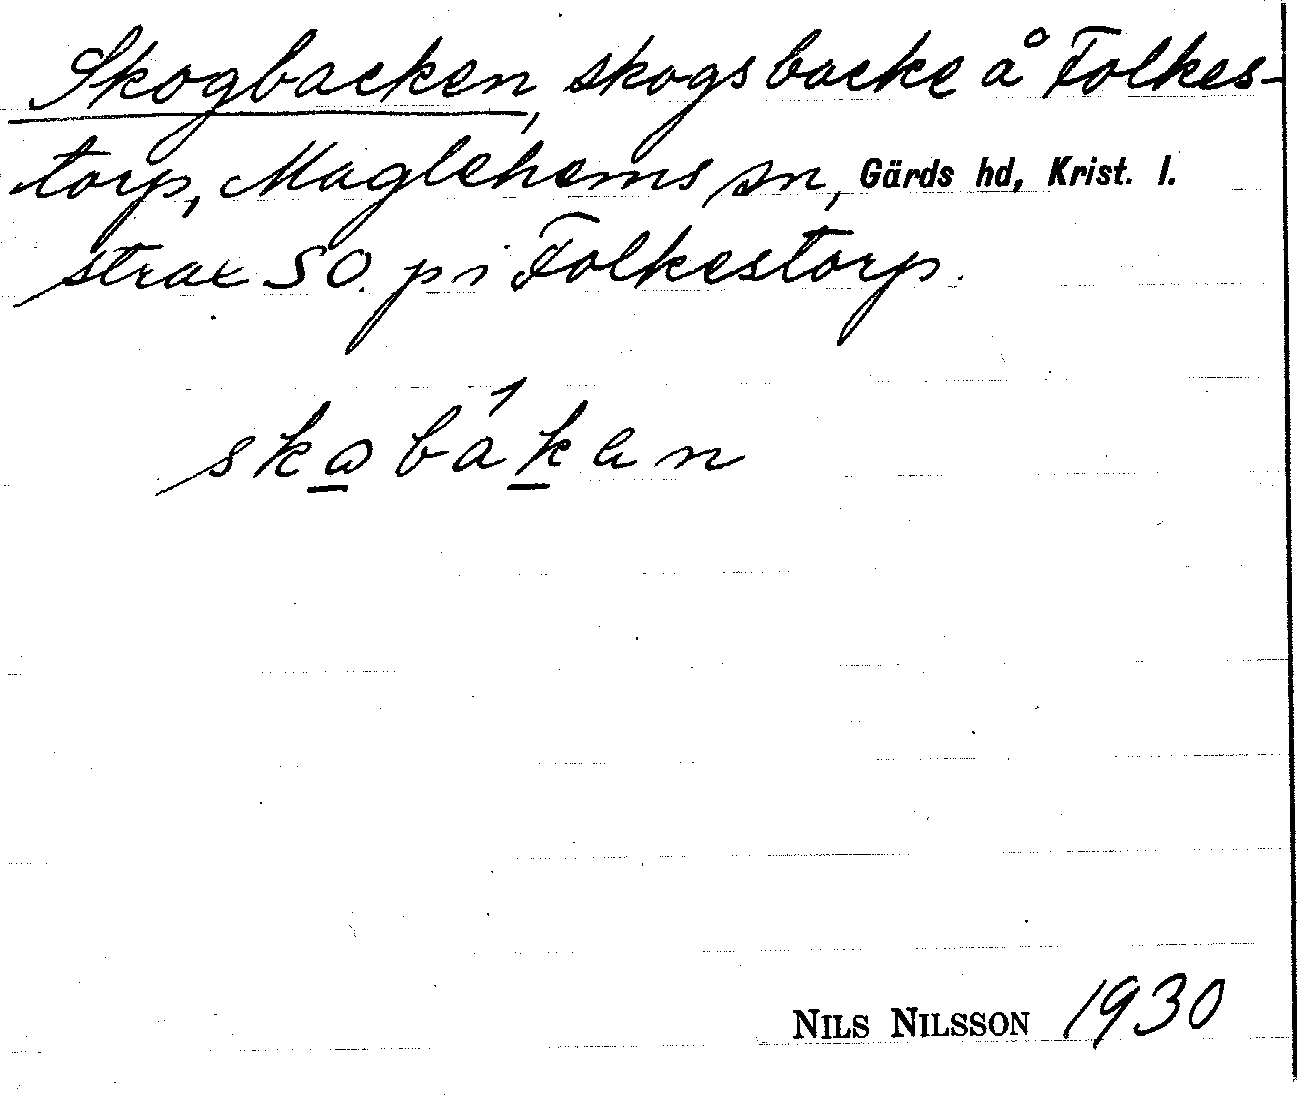 Skogbacken, skogsbacke å Folkes-
torp, Maglehems sn, Gärds hd, Krist. l.
strax SO. p i Folkestorp.
skobákan
NILS NILSSON 1930